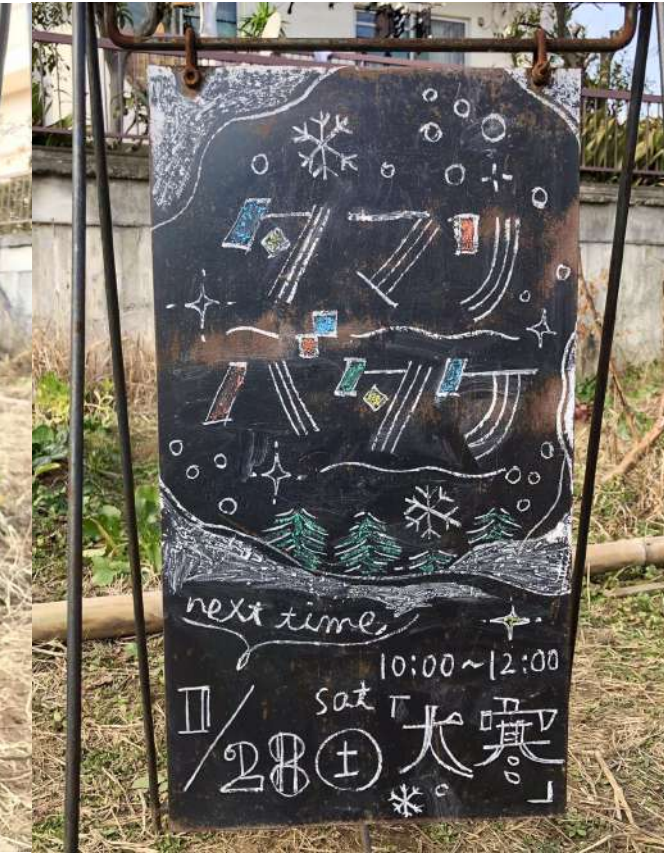 タマリ
バタケ
next time,
10:00~12:00
1/28 sat ㊏ 「大寒」